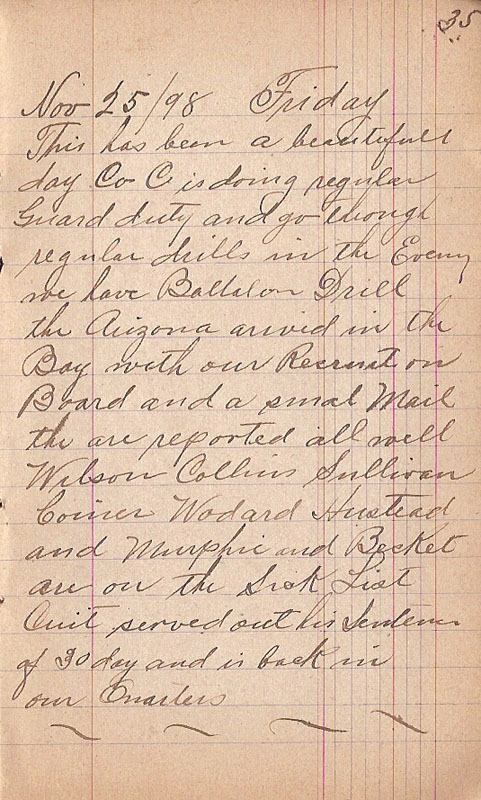 35
Nov 25/98 Friday
This has been a beautifull
day Co C is doing regular
Guard duty and go though
regular drills in the Eveng
we have Battalon Drill
the Arizona arived in the
Bay with our Recruit on
Board and a smal Mail
the are reported all well
Wilson Collins Sullivan
Coiner Wodard Hustead
and Murphie and Becket
are on the Sick List
served out his Sentence
of 30 day and is back in
our Quarters